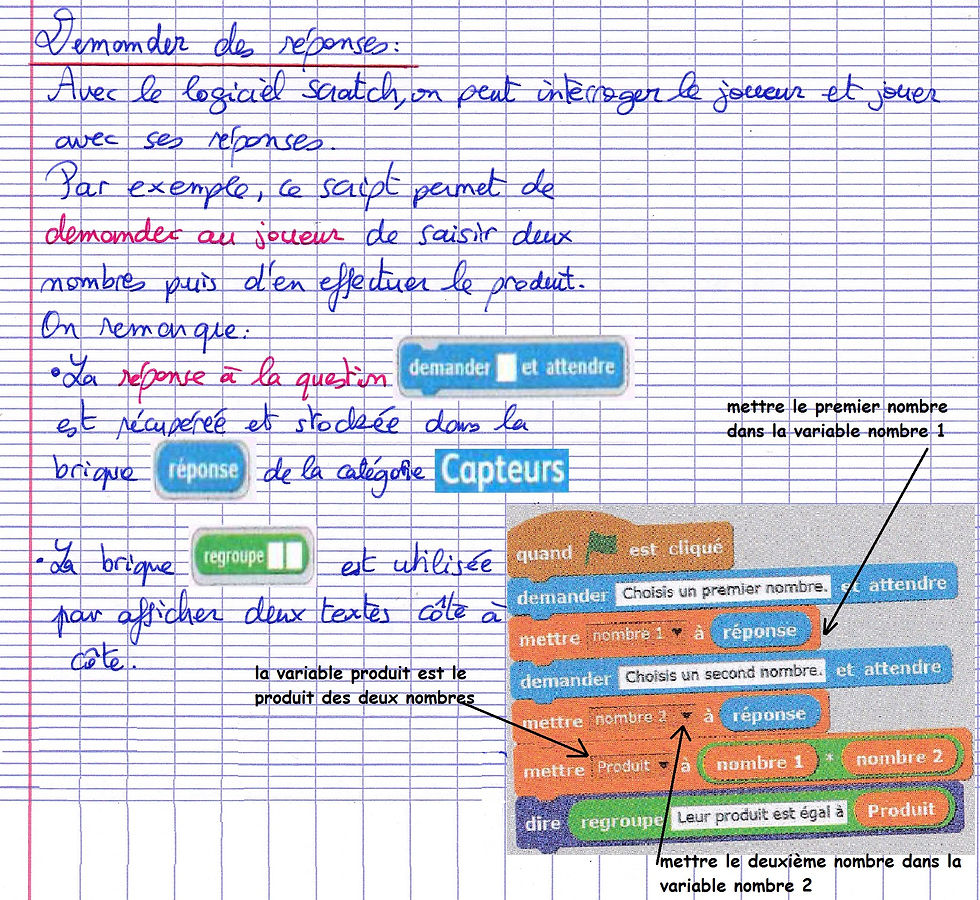 Demander des réponses:
Avec le logiciel Scratch, on peut interroger le joueur et jouer
avec ses réponses.
Par exemple, ce script permet de
demander au joueur de saisir deux
nombres puis d'en effectuer le produit.
On remarque:
•La réponse à la question demander et attendre
est récupérée et stockée dans la
brique réponse de la catégorie Capteurs
•La brique regroupe est utilisée
par afficher deux textes côte à
côte.
mettre le premier nombre
dans la variable nombre 1
la variable produit est le
produit des deux nombres
quand est cliqué
demander Choisis un premier nombre. et attendre
mettre nombre 1 à réponse
demander Choisis un second nombre. et attendre
mettre nombre 2 à réponse
mettre Produit à nombre 1 * nombre 2
dire regroupe Leur produit est égal à Produit
mettre le deuxième nombre dans la
variable nombre 2